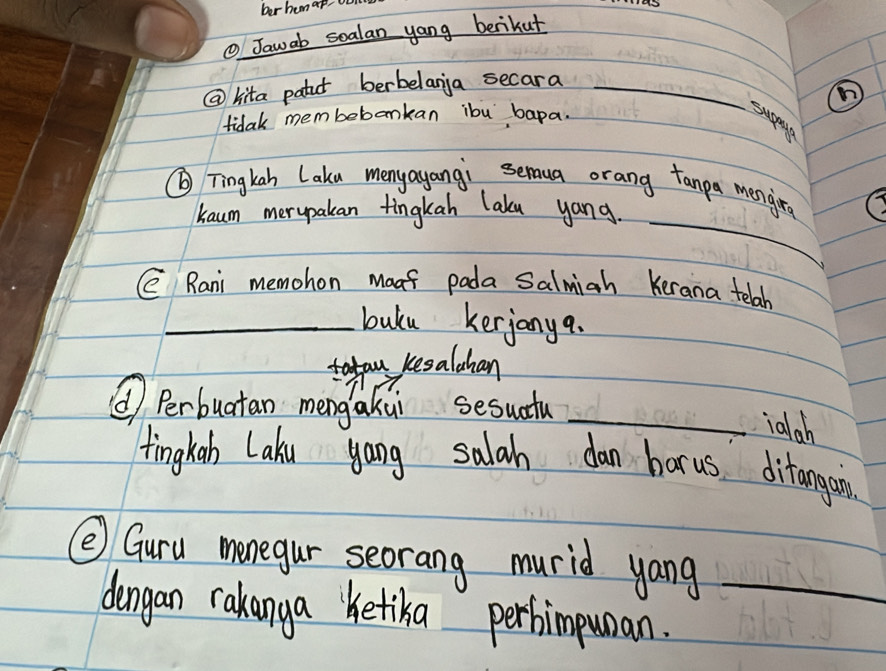 ① Jawab soalan yang berikut
ⓐ kita patut berbelanja secara ________ supaya
tidak membebankan ibu bapa.
ⓑ Tingkah Laku menyayangi semua orang tanpa mengira
kaum merupakan tingkah laku yang. ________
ⓒ Rani memohon maaf pada Salmiah kerana telah
________ buku kerjanya.
kesalahan
ⓓ Perbuatan mengakui sesuatu ________ ialah
tingkah Laku yang salah dan harus ditangani.
ⓔ Guru menegur seorang murid yang ________
dengan rakanya ketika perhimpunan.
ⓗ